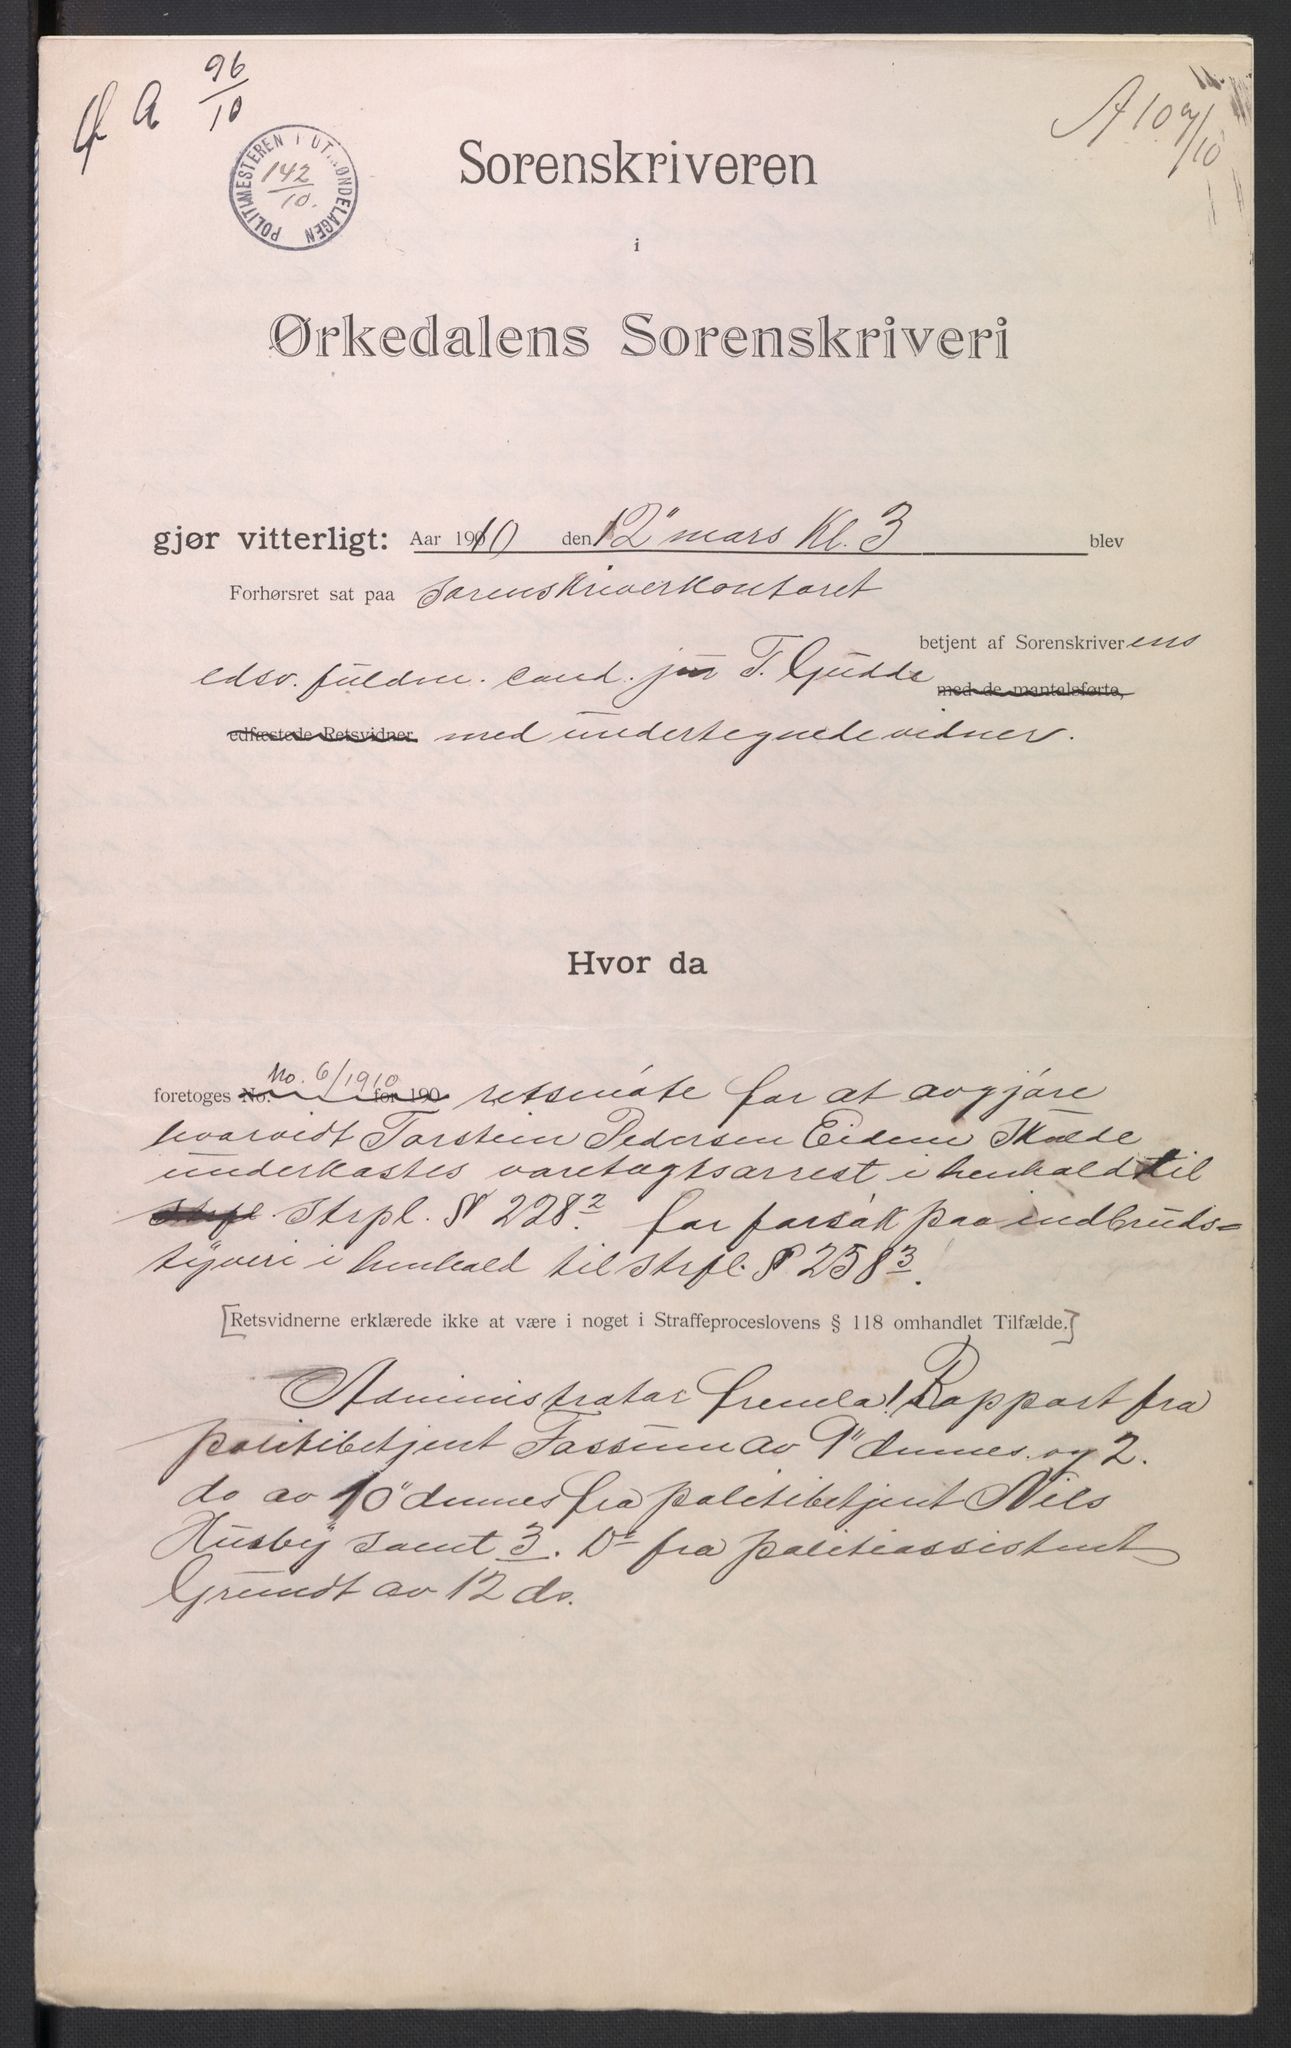 A 96/10
A 109/10
POLITIMESTEREN I UTTRØNDELAGEN
142/10.
Sorenskriveren
i
Ørkedalens Sorenskriveri
gjør vitterligt: Aar 1910 den 12" mars Kl. 3 blev
Forhørsret sat paa sorenskriverkontoret
betjent af Sorenskriverens
edsv. fuldm. cand. jur T. Gudde med de mantalsførte,
edfæstede Retsvidner med undertegnede vidner.
Hvor da
No. 6/1910
foretoges No. for 190 retsmöte for at avgjöre
hvorvidt Torstein Pedersen Eidem Skulde
underkastes varetægtsarrest i henhold til
Strfl. Strpl. § 228² for forsök paa indbruds-
tyveri i henhold til strfl. § 258³.
[Retsvidnerne erklærede ikke at være i noget i Straffeproceslovens § 118 omhandlet Tilfælde.]
Administrator fremla 1 Rapport fra
politibetjent Fossum av 9" dennes og 2.
do av 10" dennes fra politibetjent Nils
Husby samt 3. Do fra politiassistent
Grundt av 12 do.